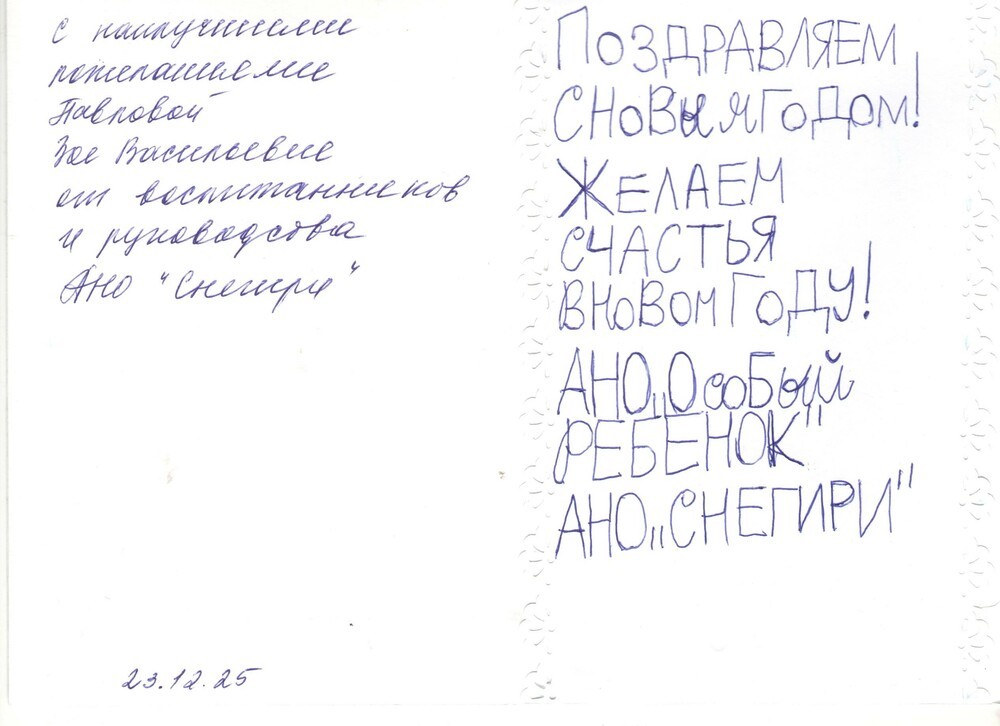 с наилучшими
пожеланиями
Павловой
Зое Васильевне
от воспитанников
и руководства
АНО "Снегири"
23.12.25
ПОЗДРАВЛЯЕМ
СНОВЫМГОДОМ!
ЖЕЛАЕМ
СЧАСТЬЯ
ВНОВОМ ГОДУ!
АНО„ОСОБЫЙ
РЕБЕНОК"
АНО„СНЕГИРИ"